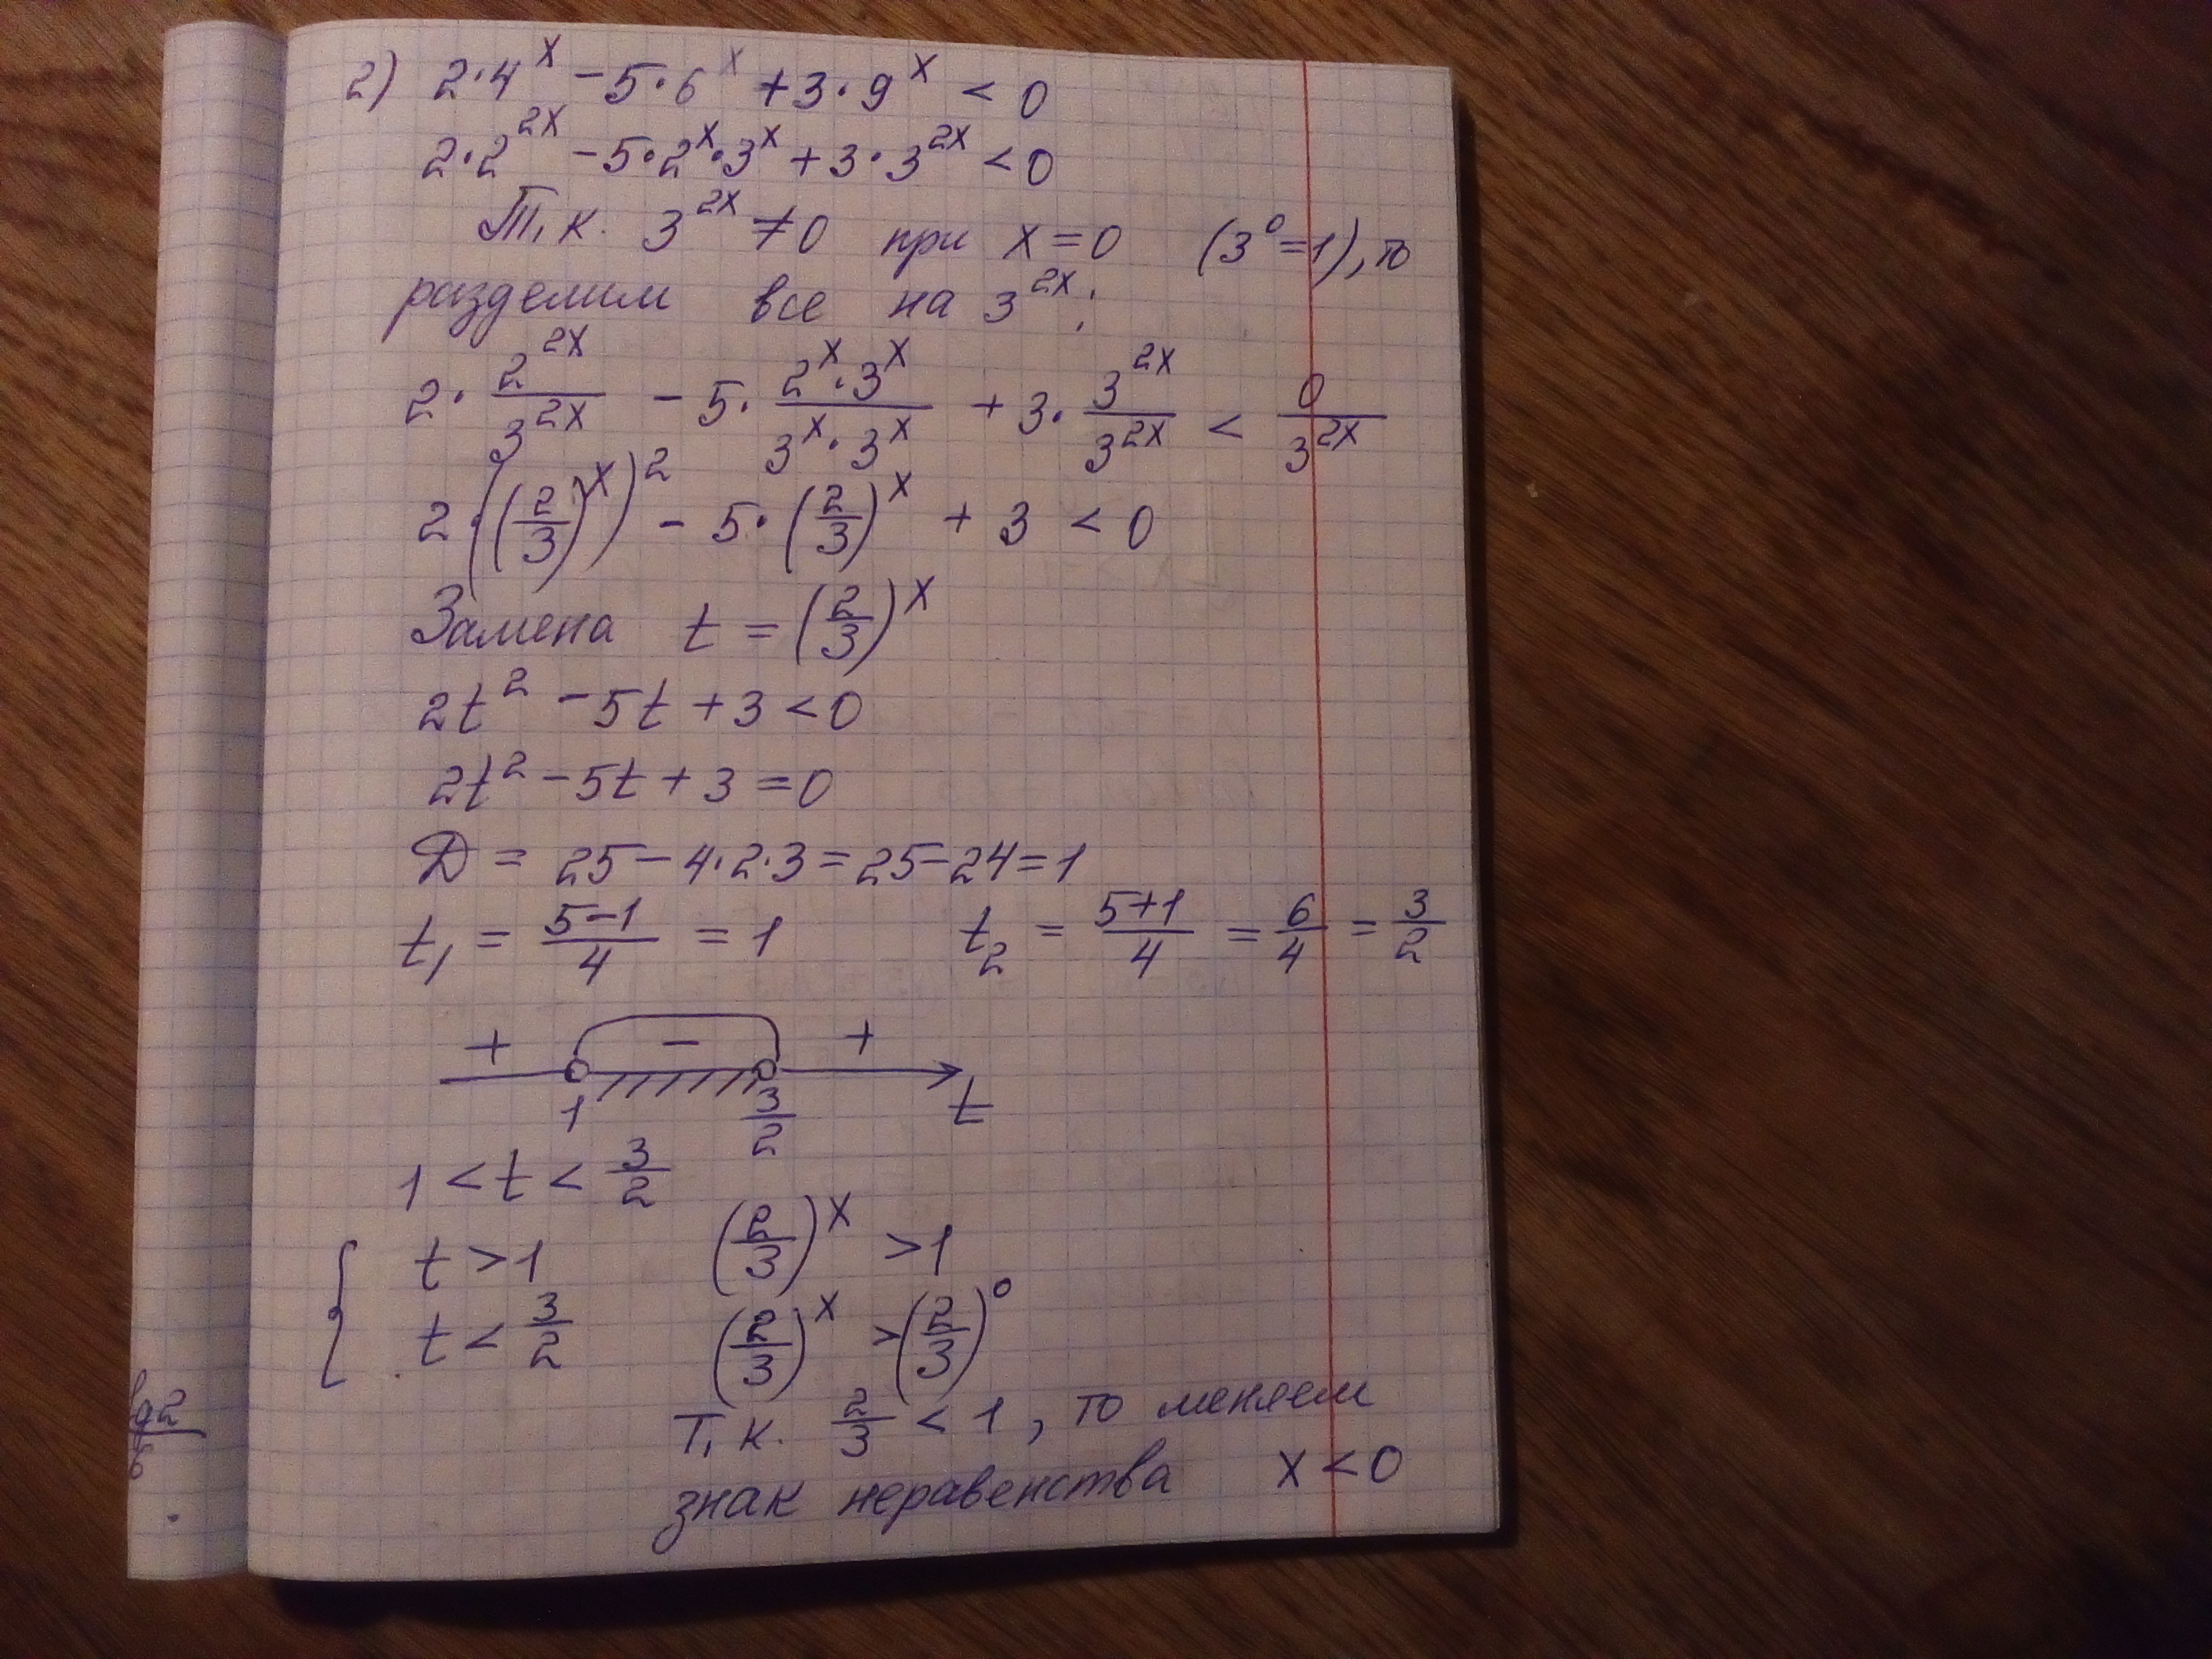 2) 2·4^x − 5·6^x + 3·9^x < 0
2·2^{2x} − 5·2^x·3^x + 3·3^{2x} < 0
Т.к. 3^{2x} ≠ 0 при x = 0 (3^0 = 1), то
разделим все на 3^{2x};
2·\frac{2^{2x}}{3^{2x}} − 5·\frac{2^x·3^x}{3^x·3^x} + 3·\frac{3^{2x}}{3^{2x}} < \frac{0}{3^{2x}}
2·((\frac{2}{3})^x)^2 − 5·(\frac{2}{3})^x + 3 < 0
Замена t = (\frac{2}{3})^x
2t^2 − 5t + 3 < 0
2t^2 − 5t + 3 = 0
D = 25 − 4·2·3 = 25 − 24 = 1
t_1 = \frac{5−1}{4} = 1 t_2 = \frac{5+1}{4} = \frac{6}{4} = \frac{3}{2}
+ − +
1 \frac{3}{2} t
1 < t < \frac{3}{2}
{ t > 1 (\frac{2}{3})^x > 1
t < \frac{3}{2} (\frac{2}{3})^x > (\frac{2}{3})^0
Т.к. \frac{2}{3} < 1, то меняем
знак неравенства x < 0